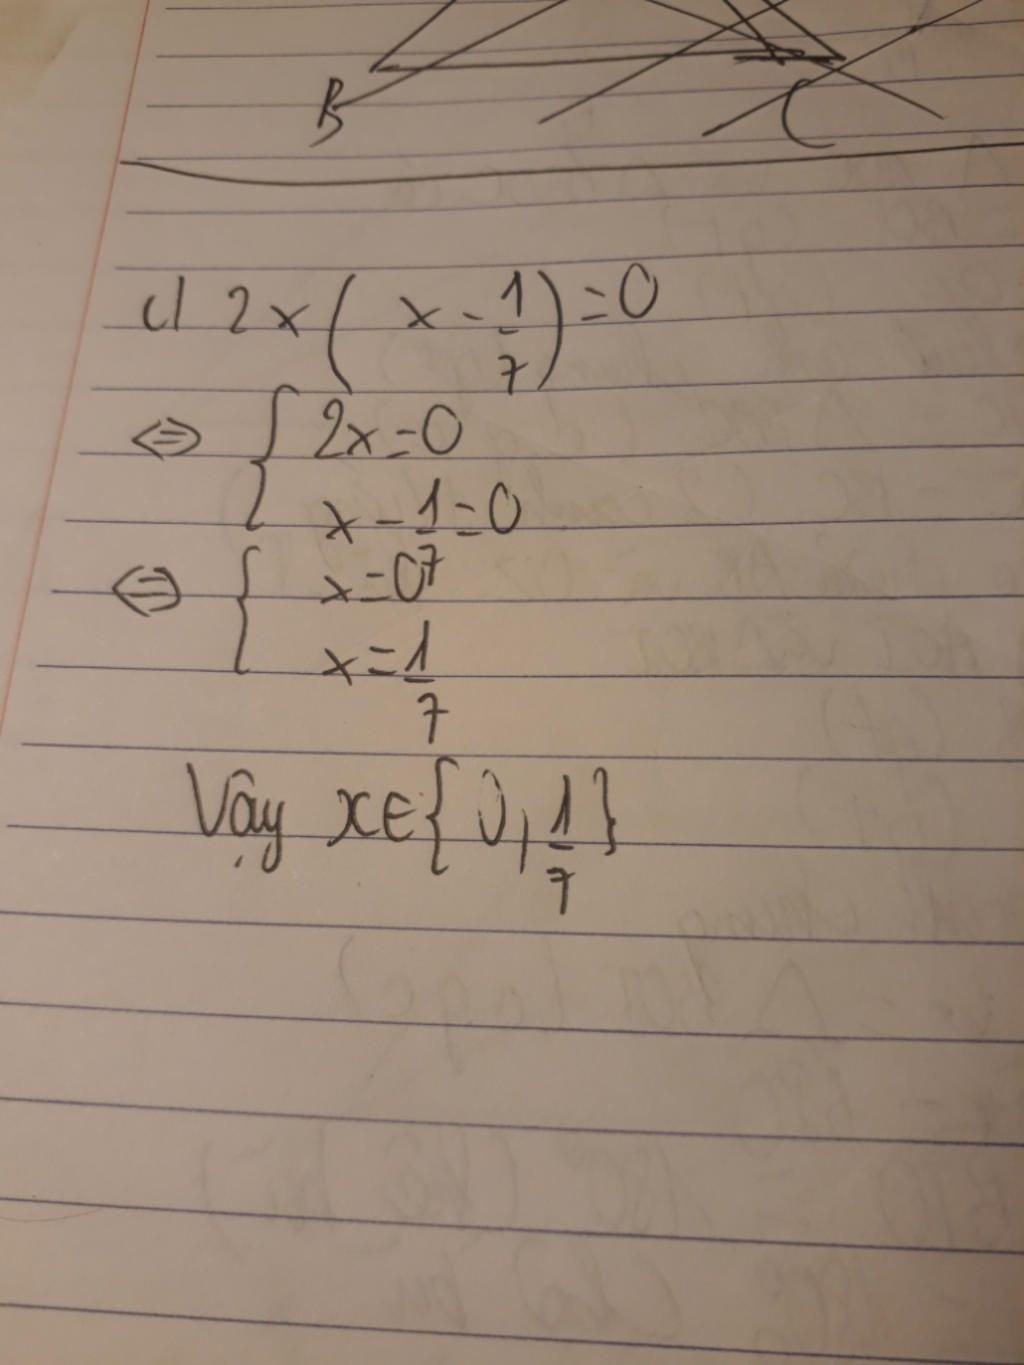 B C
c) 2x(x - 1/7) = 0
⇔ { 2x = 0
x - 1/7 = 0
⇔ { x = 0
x = 1/7
Vậy x ∈ { 0, 1/7 }